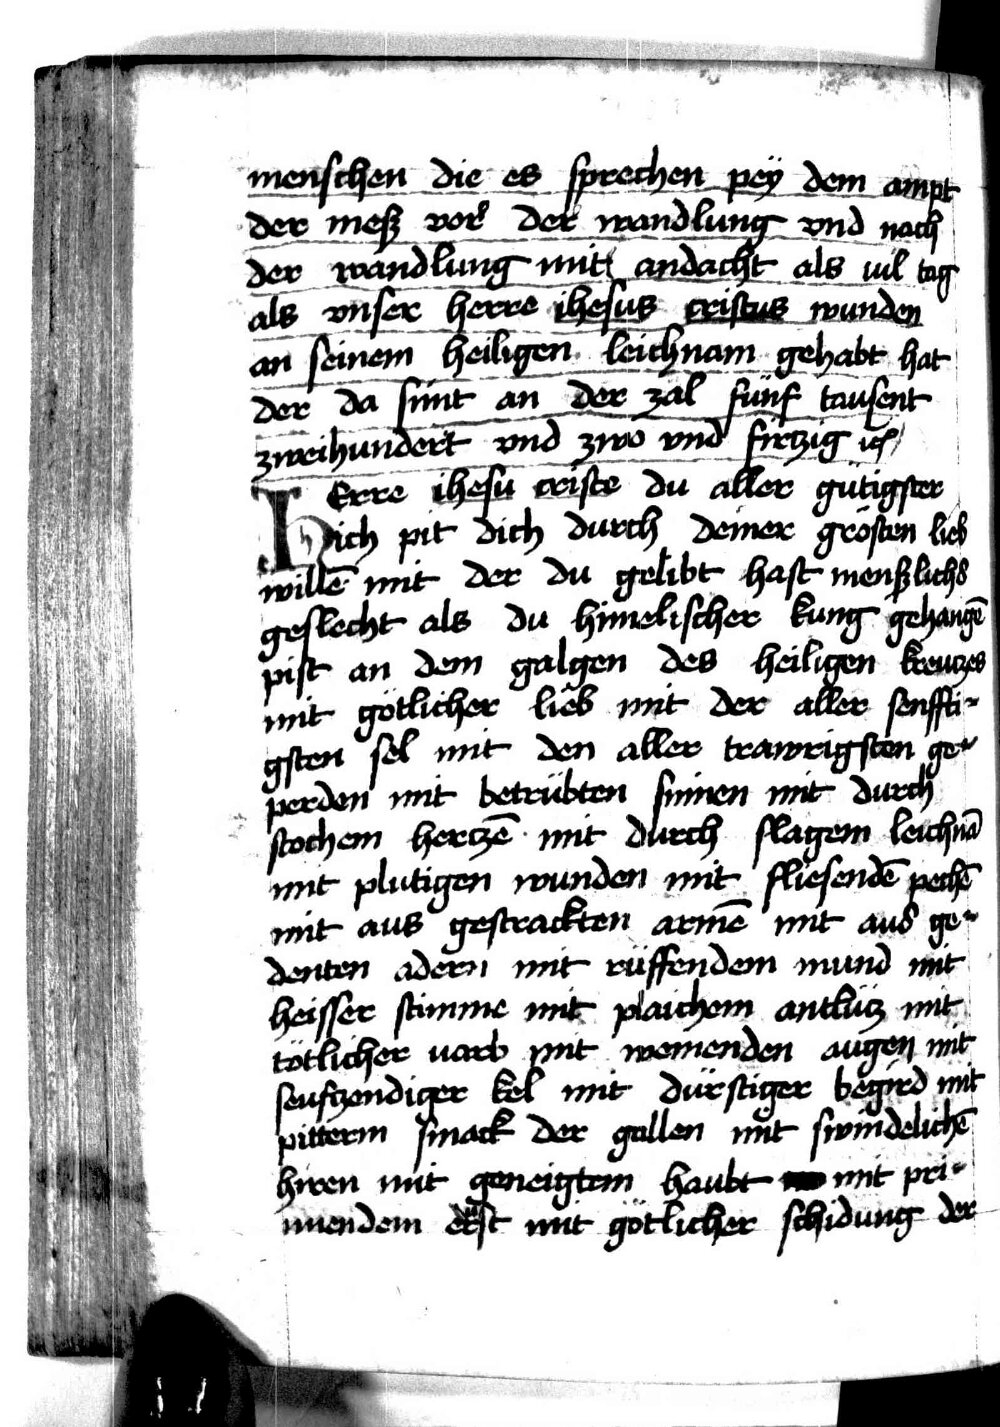 menschen die es sprechen peÿ dem ampt
der meß vor der wandlung vnd nach
der wandlung mit andacht als uil tag
als vnser herre ihesus cristus wunden
an seinem heiligen leichnam gehabt hat
der da sint an der zal fünf tausent
zweihundert vnd zwo vnd firtzig
HErre ihesu criste du aller gütigster
ich pit dich durch deiner grösten lieb
willē mit der du gelibt hast menßlichs
geslecht als du himelischer kung gehangē
pist an dem galgen des heiligen kreutzes
mit götlicher lieb mit der aller senffti-
gsten sel mit den aller trawrigsten ge-
perden mit betrübten sinnen mit durch
stochem hertzē mit durch slagem leichnā
mit plutigen wunden mit fliesendē pechē
mit aus gestrackten armē mit aus ge-
denten adern mit rüffendem mund mit
heisser stimme mit plaichem antlütz mit
tötlicher uarb mit weinenden augen mit
seuftzendiger kel mit dürstiger begird mit
pitterm smack der gallen mit swindelichē
hiren mit geneigtem haubt mit pri-
nnendem mit götlicher schidung der